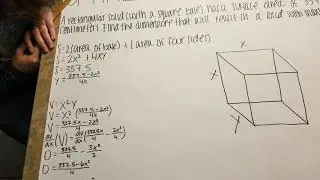 A rectangular solid (with a square base) has a surface area of 337.5
centimeters. Find the dimensions that will result in a solid with
S=2(area of base) + (area of four sides)
S=2x² + 4xy
S=337.5
y= 337.5-2x² / 4x
V=x²y
V= x² (337.5-2x² / 4x)
V= 337.5x-2x³ / 4
d/dx (V) = d/dx (337.5x / 4 - 2x³ / 4)
0= 337.5 / 4 - 3x² / 2
0= 337.5-6x² / 4
X
X
Y